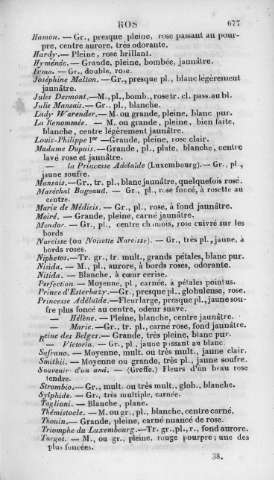 ROS 677
Hamon. — Gr., presque pleine, rose passant au pour-
pre, centre aurore, très odorante.
Hardy. — Pleine, rose brillant.
Hyménée. — Grande, pleine, bombée, jaunâtre.
— Gr., double, rose.
Joséphine Malton. — Gr., presque pl., blanc légèrement
jaunâtre.
Jules Desmont. — M., pl., bomb., rose tr. cl. pass. au bl.
Julie Mansais. — Gr. pl., blanche.
Lady Warender. — M. ou grande, pleine, blanc pur.
La Renommée. — M. ou grande, pleine, bien faite,
blanche, centre légèrement jaunâtre.
Louis-Philippe Ier — Grande, pleine, rose clair.
Madame Dupuis. — Grande, pl., plate, blanche, centre
lavé rose et jaunâtre.
— la Princesse Adélaïde (Luxembourg). — Gr., pl.,
jaune soufre.
Mansais. — Gr., tr. pl., blanc jaunâtre, quelquefois rosé.
Maréchal Bugeaud. — Gr., pl., rose foncé, à rosette au
centre.
Marie de Médicis. — Gr., pl., rose, à fond jaunâtre.
Moiré. — Grande, pleine, carné jaunâtre.
Mondor. — Gr., pl., centre chamois, rose cuivré sur les
bords
Narcisse (ou Noisette Narcisse). — Gr., très pl., jaune, à
bords roses.
Niphetos. — Tr. gr., tr. mult., grands pétales, blanc pur.
Nitida. — M., pl., aurore, à bords roses, odorante.
Nitida. — Blanche, à cœur cerise.
Perfection — Moyenne, pl., carnée, à pétales pointus.
Prince d'Esterhazy. — Gr., presque pl., globuleuse, rose.
Princesse Adélaïde. — Fleur large, presque pl., jaune sou-
fre plus foncé au centre, odeur suave.
— Hélène. — Pleine, blanche, centre jaunâtre.
— Marie. — Gr., tr. pl., carné rose, fond jaunâtre.
Reine des Belges. — Grande, très pleine, blanc pur.
— Victoria. — Gr., pl., jaune passant au blanc.
Safrano. — Moyenne, mult. ou très mult., jaune clair.
Smithii. — Moyenne ou grande, très pl., jaune soufre.
Souvenir d'un ami. — (Greffe.) Fleurs d'un beau rose
tendre.
Strombio. — Gr., mult. ou très mult., glob., blanche.
Sylphide. — Gr., très multiple, carnée.
Taglioni. — Blanche, plane.
Thémistocle. — M. ou gr., pl., blanche, centre carné.
Thouin. — Grande, pleine, carné nuancé de rose.
Triomphe du Luxembourg. — Tr. gr., pl., r., fond aurore.
Turgot. — M., ou gr., pleine, rouge pourpre; une des
plus foncées.
38.